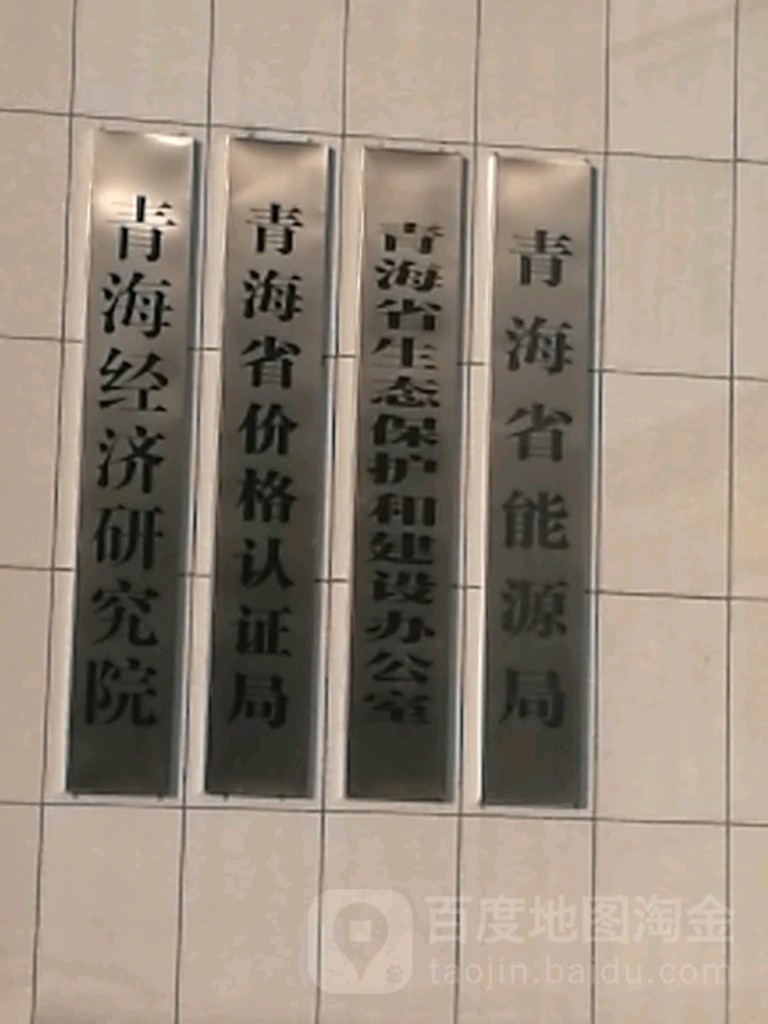 青海经济研究院
青海省价格认证局
青海省生态保护和建设办公室
青海省能源局
百度地图淘金
taojin.baidu.com